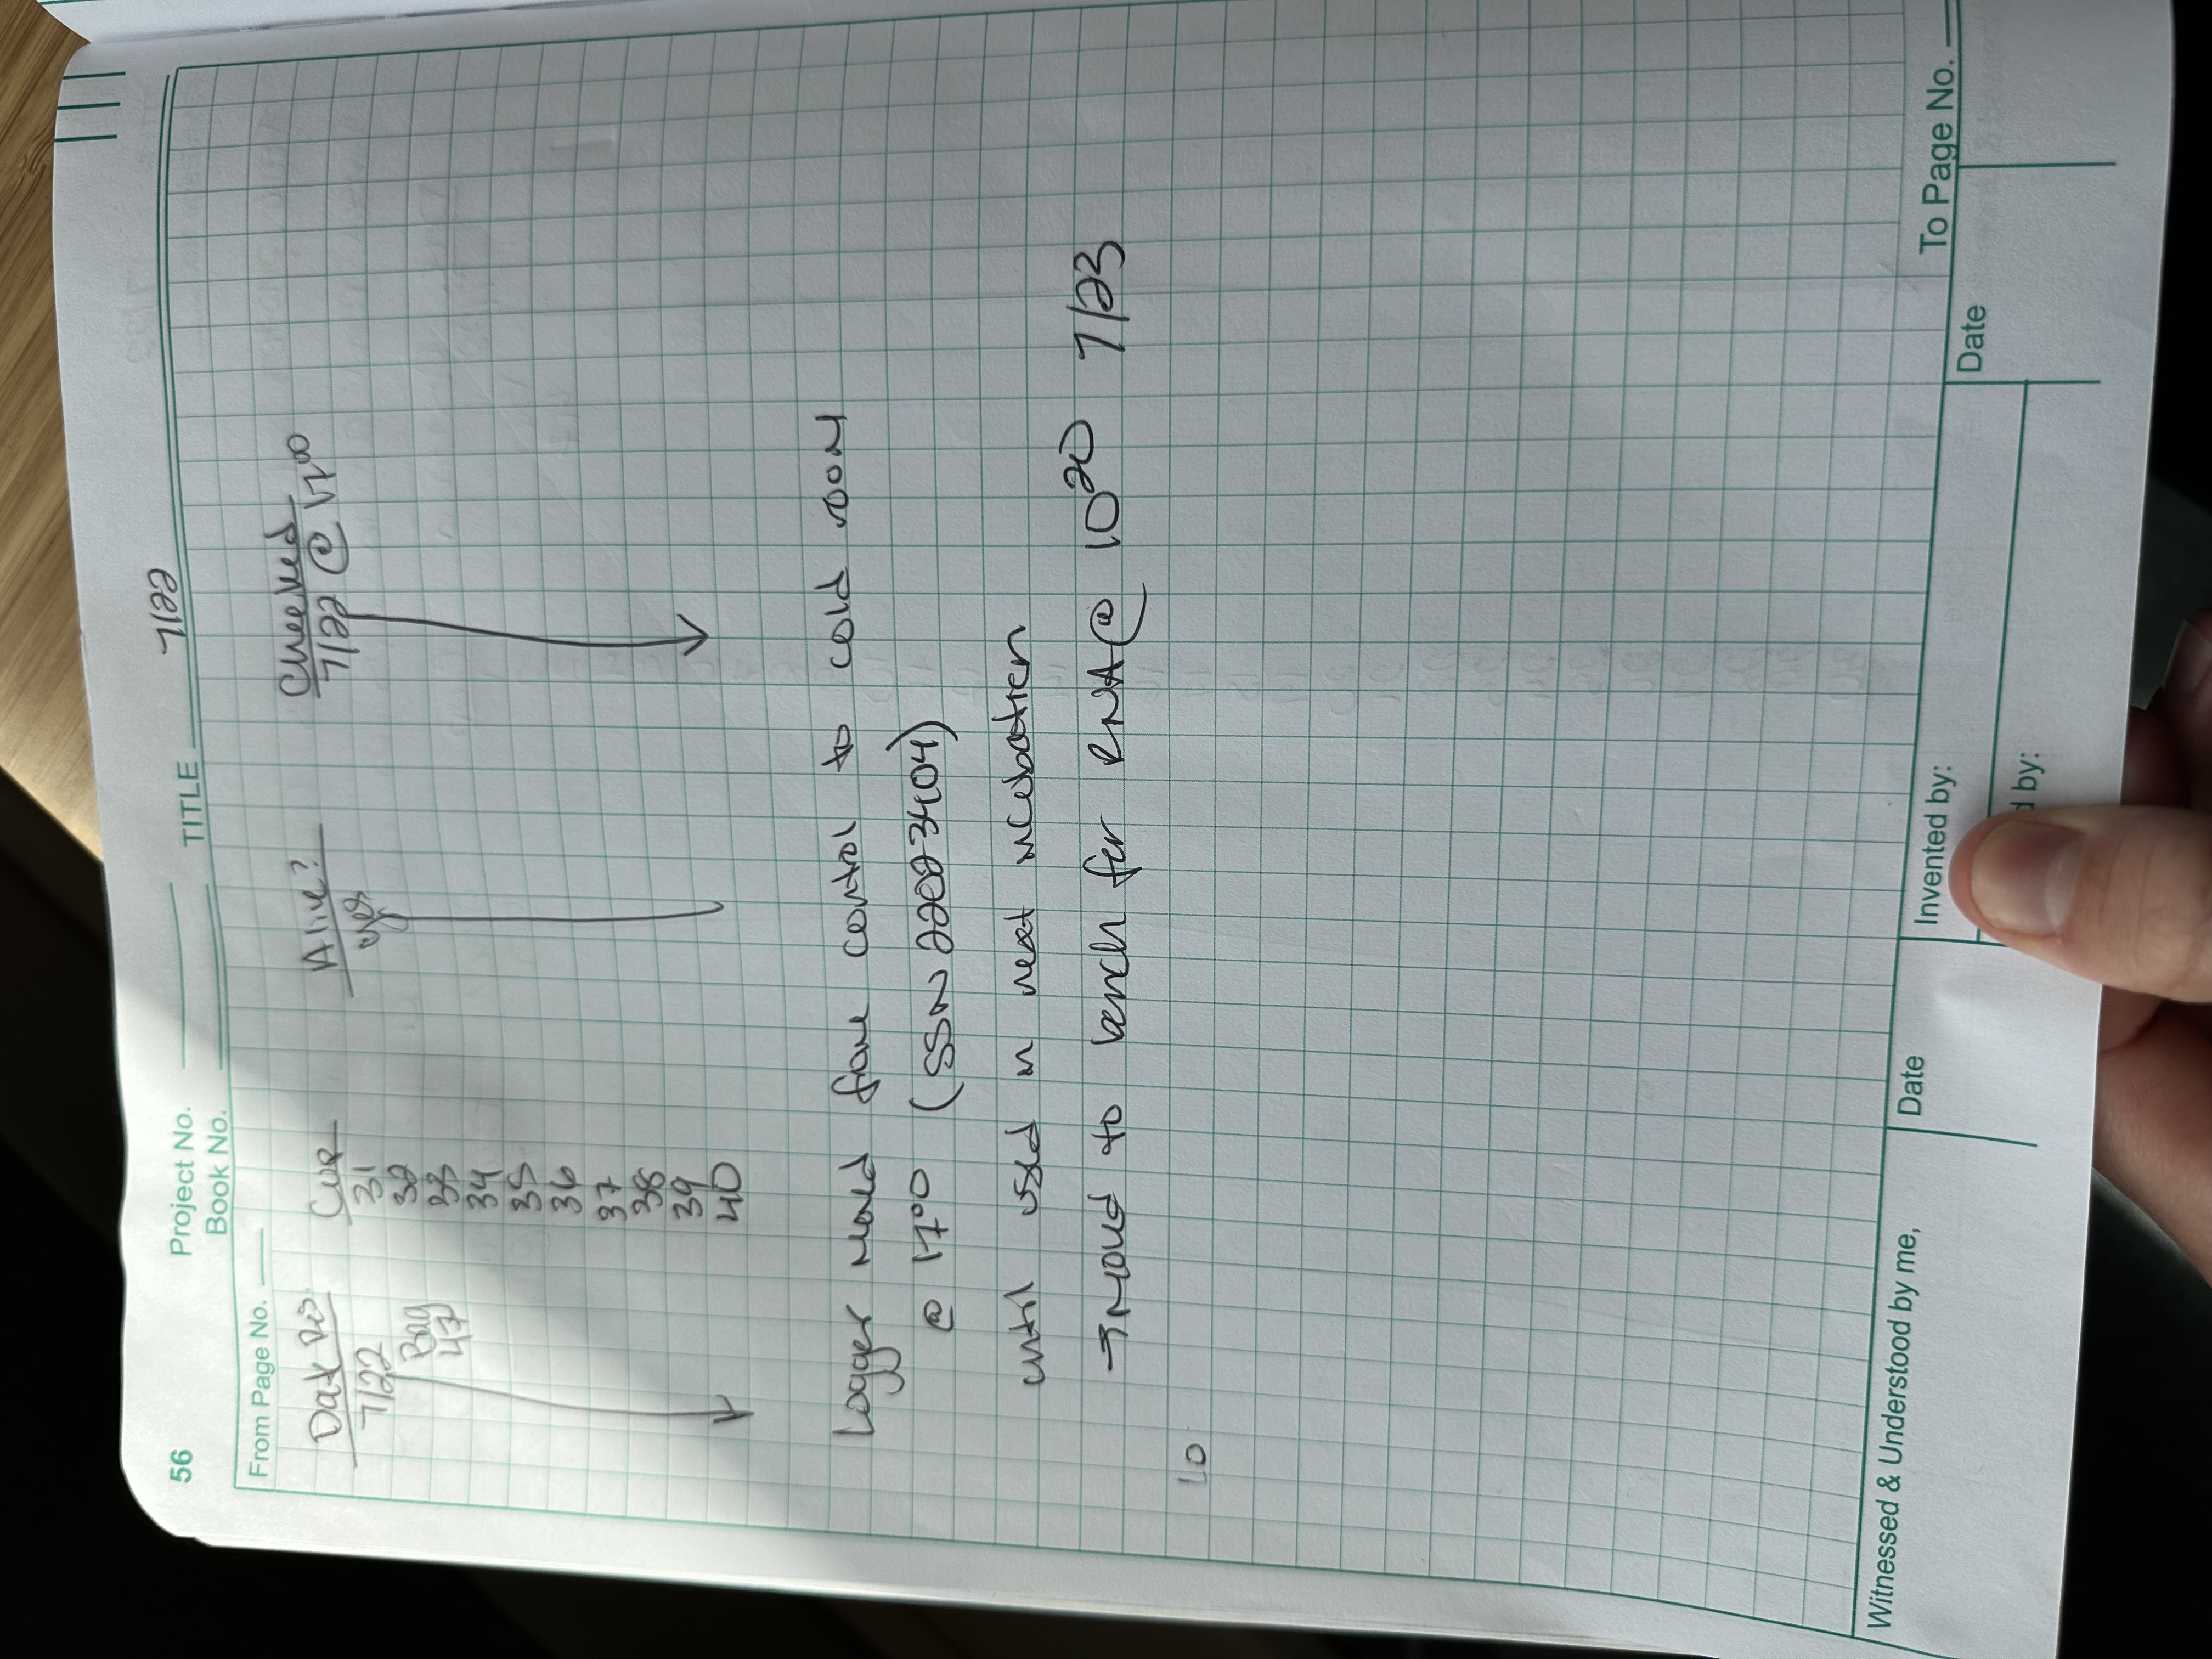 56
Project No.
Book No.
TITLE 7/22
From Page No.
Date Cup Alive? Checked
7/22 31 yes 7/22 @ 17⁰⁰
Bag 32
47 33
34
35
36
37
38
39
40
Logger moved from control to cold room
@ 17⁰⁰ (SSN 22023404)
until used in next incubation
→ Moved to bench for RNA @ 10²⁰ 7/23
10
To Page No.
Witnessed & Understood by me,
Date
Invented by:
Date
d by: